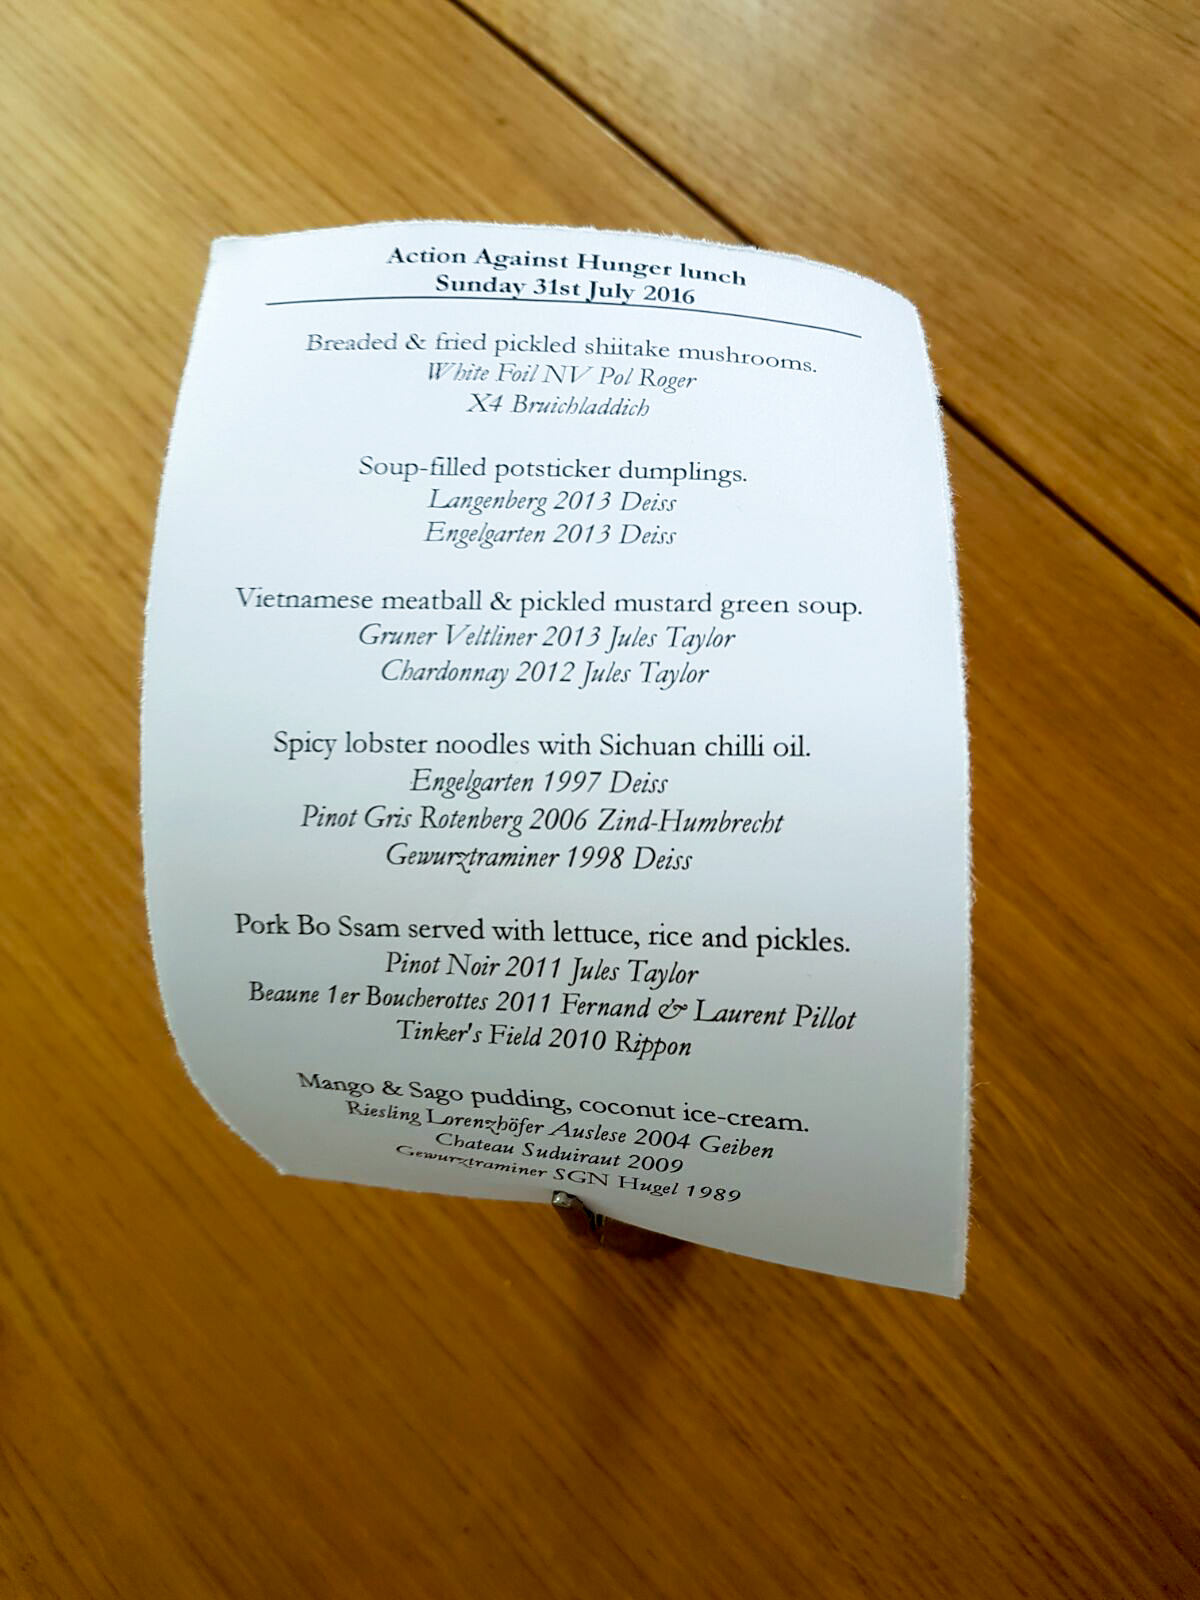 Action Against Hunger lunch
Sunday 31st July 2016
Breaded & fried pickled shiitake mushrooms.
White Foil NV Pol Roger
X4 Bruichladdich
Soup-filled potsticker dumplings.
Langenberg 2013 Deiss
Engelgarten 2013 Deiss
Vietnamese meatball & pickled mustard green soup.
Gruner Veltliner 2013 Jules Taylor
Chardonnay 2012 Jules Taylor
Spicy lobster noodles with Sichuan chilli oil.
Engelgarten 1997 Deiss
Pinot Gris Rotenberg 2006 Zind-Humbrecht
Gewurztraminer 1998 Deiss
Pork Bo Ssam served with lettuce, rice and pickles.
Pinot Noir 2011 Jules Taylor
Beaune 1er Boucherottes 2011 Fernand & Laurent Pillot
Tinker's Field 2010 Rippon
Mango & Sago pudding, coconut ice-cream.
Riesling Lorenzhöfer Auslese 2004 Geiben
Chateau Suduiraut 2009
Gewurztraminer SGN Hugel 1989